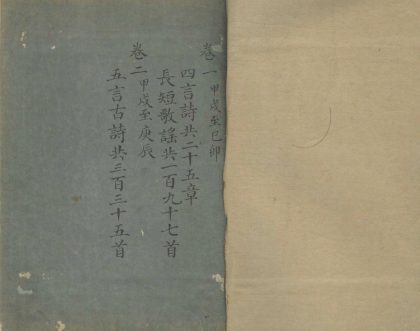 卷一甲戌至己卯
四言詩共二十五章
長短歌謠共一百九十七首
卷二甲戌至庚辰
五言古詩共三百三十五首